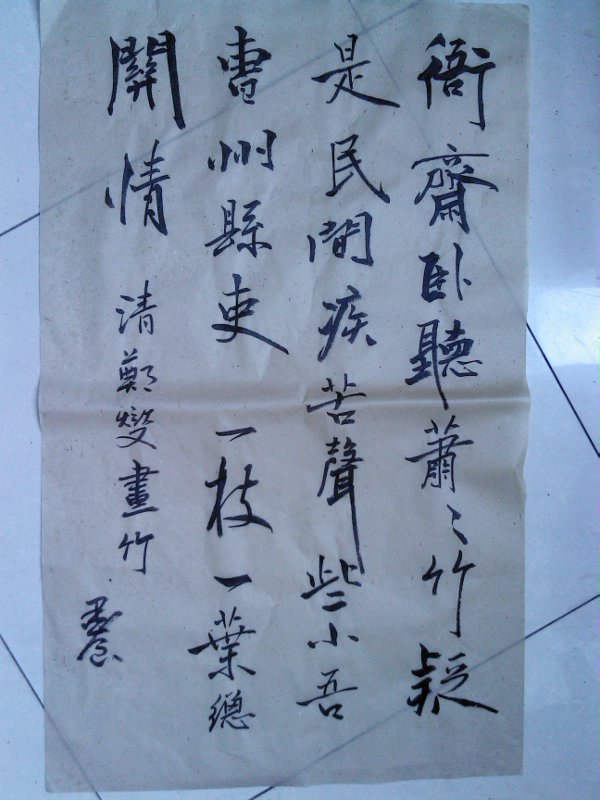 衙齋卧聽蕭〻竹疑
是民間疾苦聲些小吾
曹州縣吏一枝一葉總
關情
清鄭燮畫竹